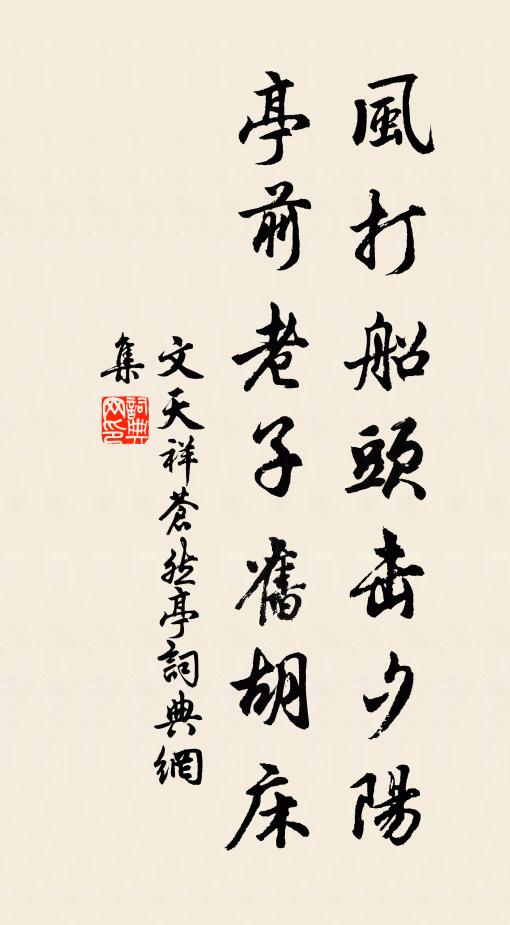 風打船頭击夕陽
亭前老子舊胡床
文天祥蒼然亭詞典網
集
詞典
网印